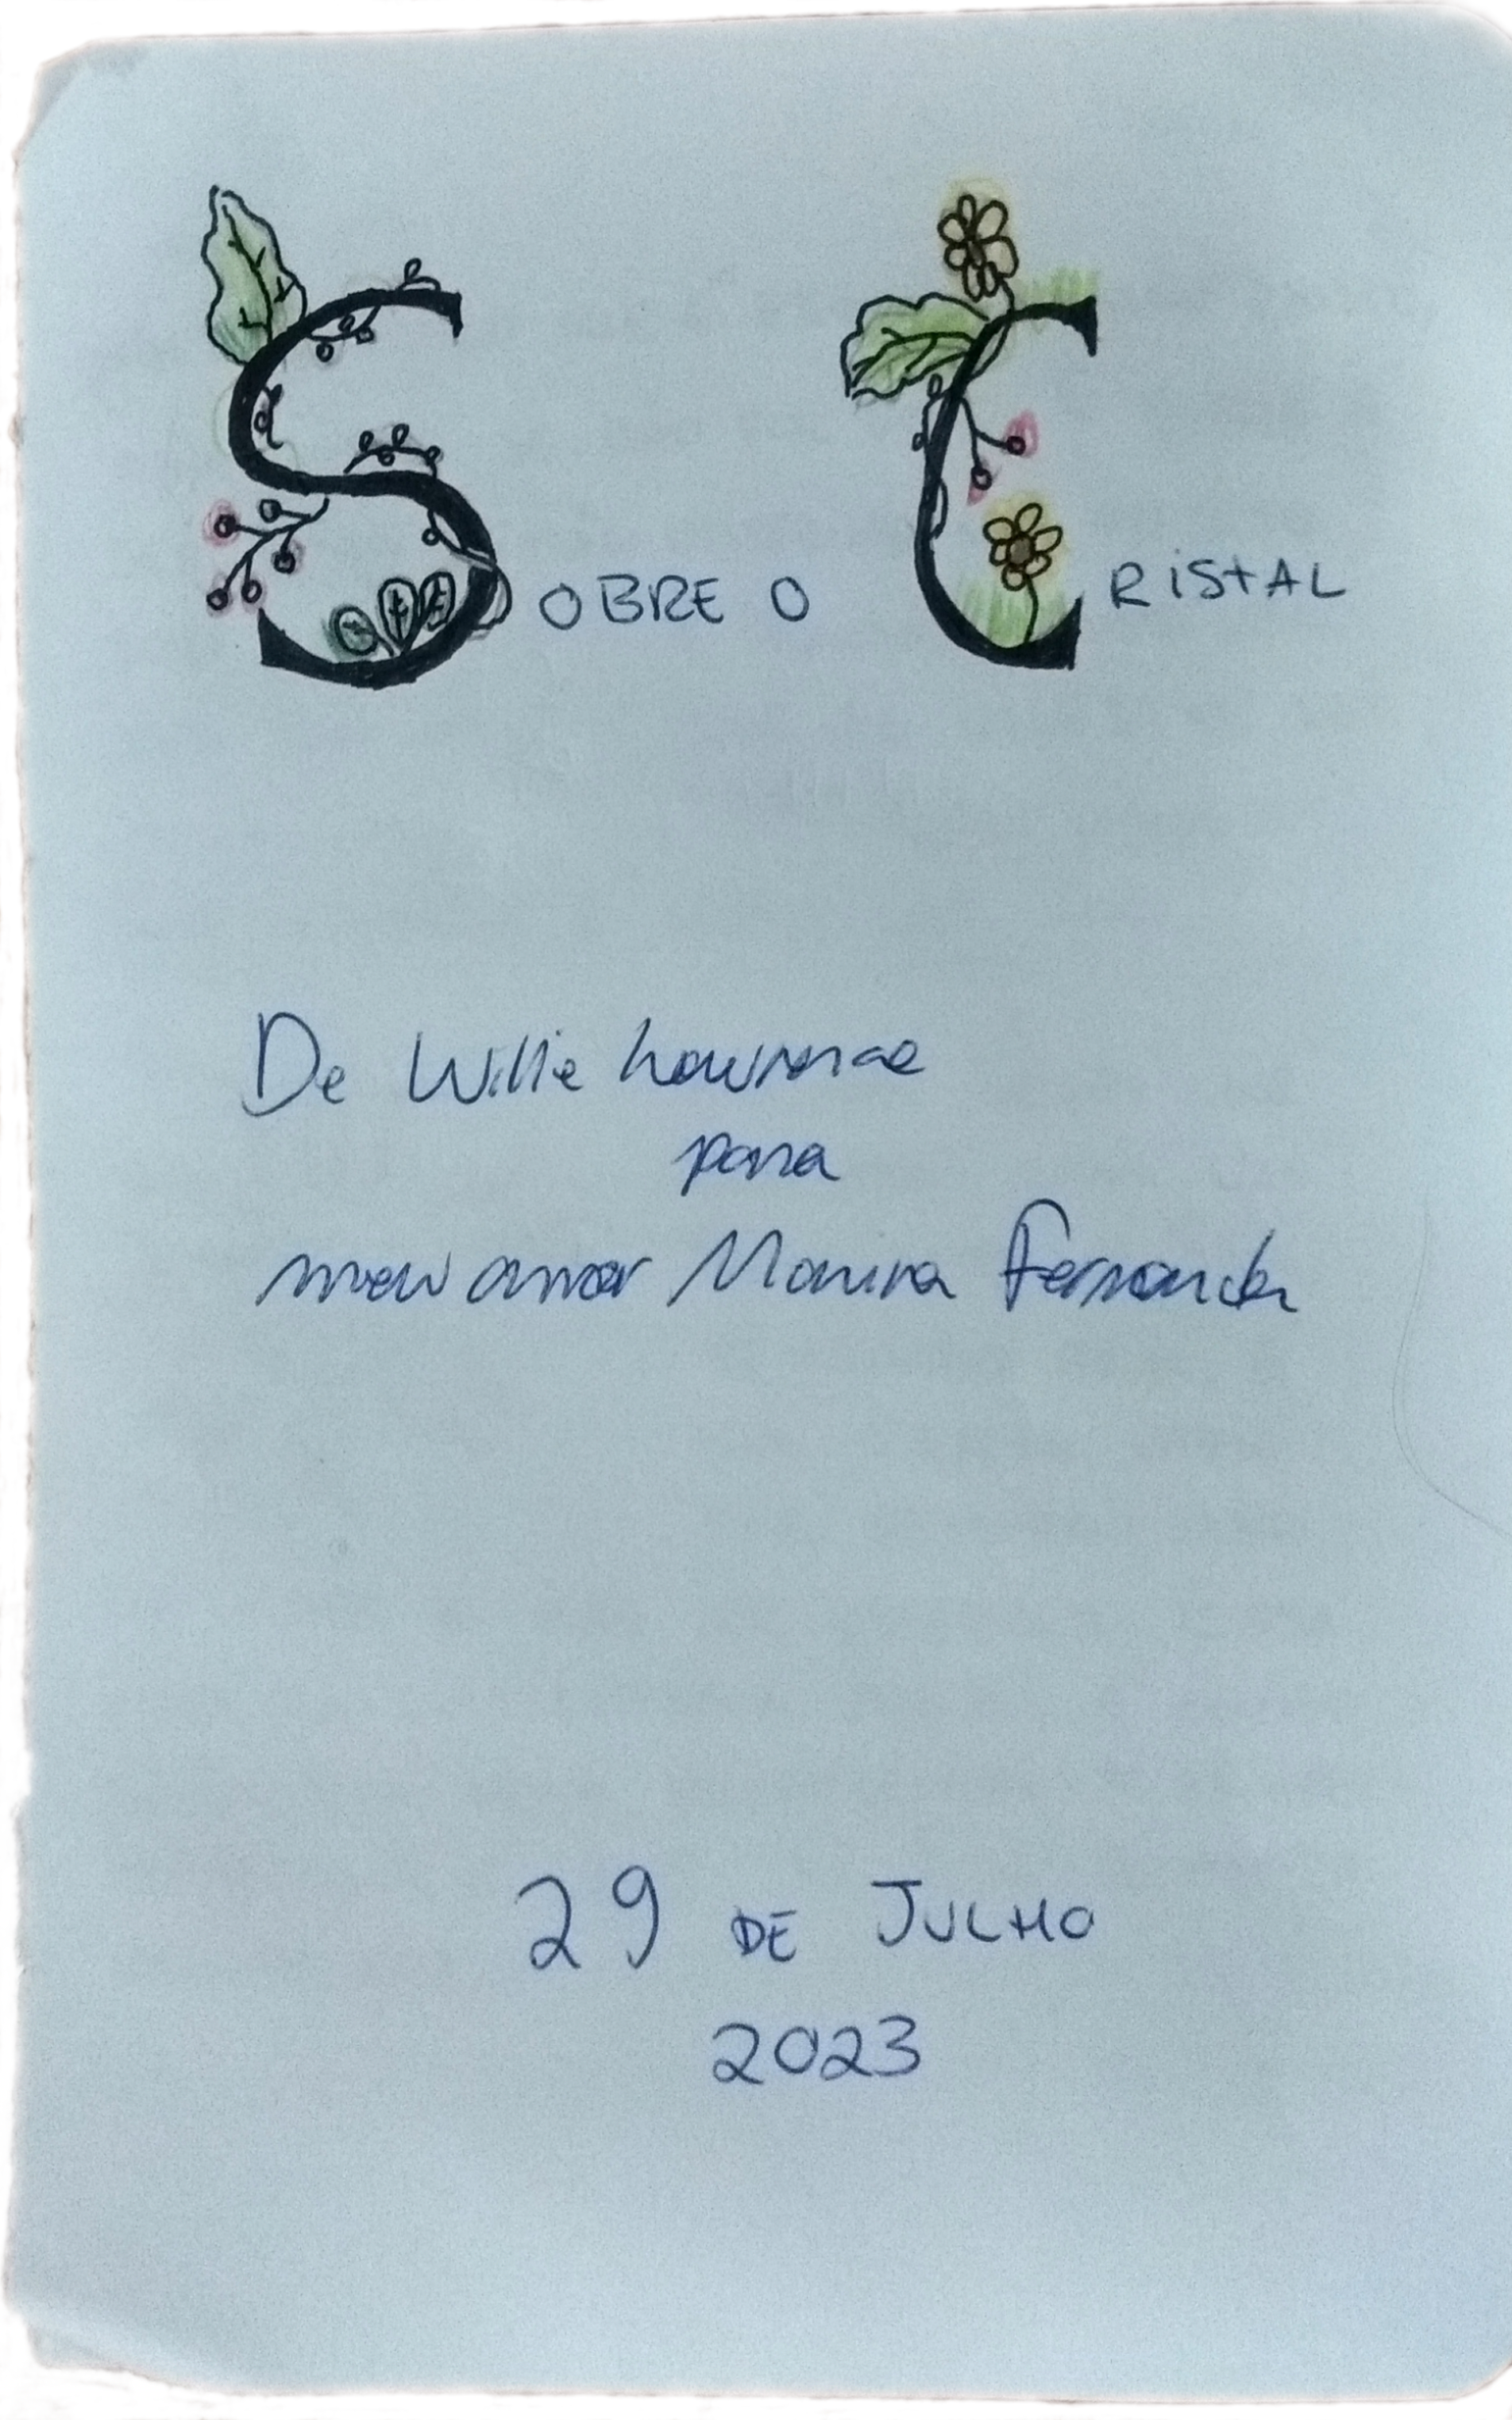 SOBRE O CRISTAL
De Willie Lawrence
para
meu amor Monira Fernanda
29 DE JULHO
2023